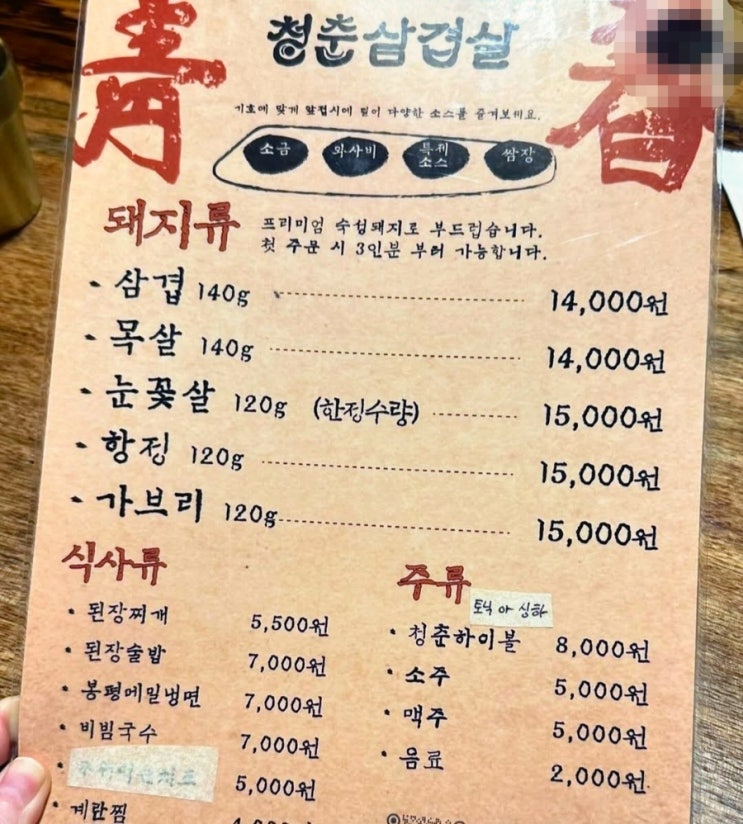 青春
청춘삼겹살
기호에 맞게 앞접시에 담아 다양한 소스를 즐겨보세요.
소금 와사비 특제 소스 쌈장
돼지류 프리미엄 숙성돼지로 부드럽습니다.
첫 주문 시 3인분 부터 가능합니다.
· 삼겹 140g 14,000원
· 목살 140g 14,000원
· 눈꽃살 120g (한정수량) 15,000원
· 항정 120g 15,000원
· 가브리 120g 15,000원
식사류
· 된장찌개 5,500원
· 된장술밥 7,000원
· 봉평메밀냉면 7,000원
· 비빔국수 7,000원
· 5,000원
· 계란찜
주류
· 청춘하이볼 8,000원
· 소주 5,000원
· 맥주 5,000원
· 음료 2,000원